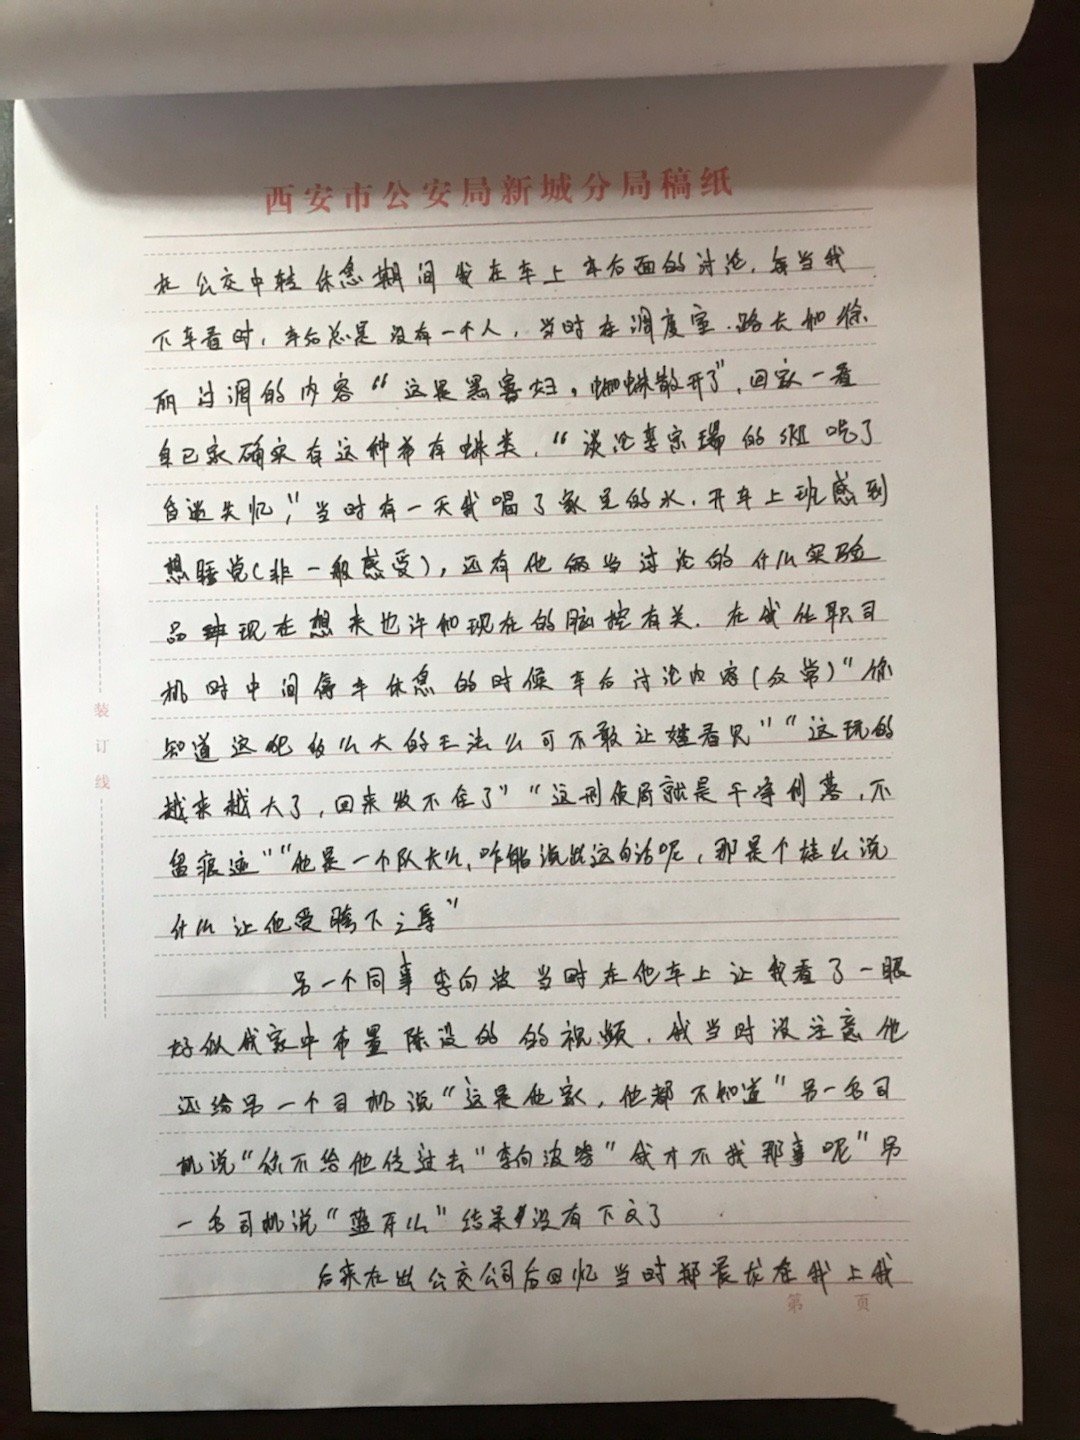 西安市公安局新城分局稿纸
在公交中转休息期间我在车上车后面的讨论，每当我
下车看时，车后总是没有一个人，当时在调度室.路长和徐
丽过调的内容“这是黑寡妇，蜘蛛散开了”，回家一看
自己家确实有这种希有蛛类.“谈论李宗瑞的 吃了
会迷失忆”，当时有一天我喝了家里的水.开车上班感到
想睡觉(非一般感受)，还有他俩当讨论的什么实验
品 现在想来也许和现在的脑控有关.在我任职司
机时中间停车休息的时候车后讨论内容(反常)“你
知道这呢 么大的王法么可不敢让 看见”“这玩的
越来越大了，回来收不住了”“这刑侦局就是干净利落，不
留痕迹”“他是一个队长么，咋能说出这句话呢，那是个 么说
什么让他受胯下之辱”
另一个同事李向波当时在他车上让我看了一眼
好似我家中布置陈设的的视频.我当时没注意他
还给另一个司机说“这是他家，他都不知道”另一名司
机说“你不给他传过去”李向波答“我才不找那事呢”另
一名司机说“蓝牙么”结果没有下文了
后来在出公交公司后回忆当时郑 龙在我上我
装
订
线
第 页